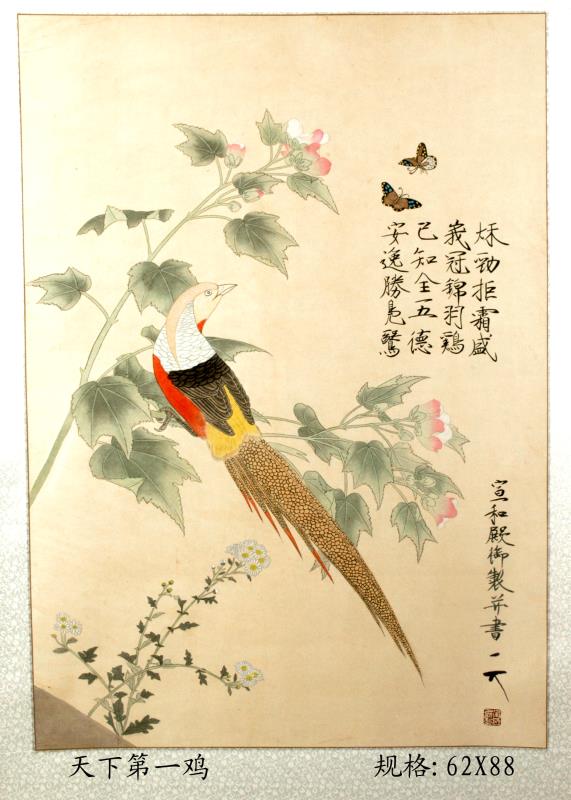 秌勁拒霜盛
峩冠錦羽鷄
已知全五德
安逸勝鳧鷖
宣和殿御製并書
天下第一鸡
规格: 62X88